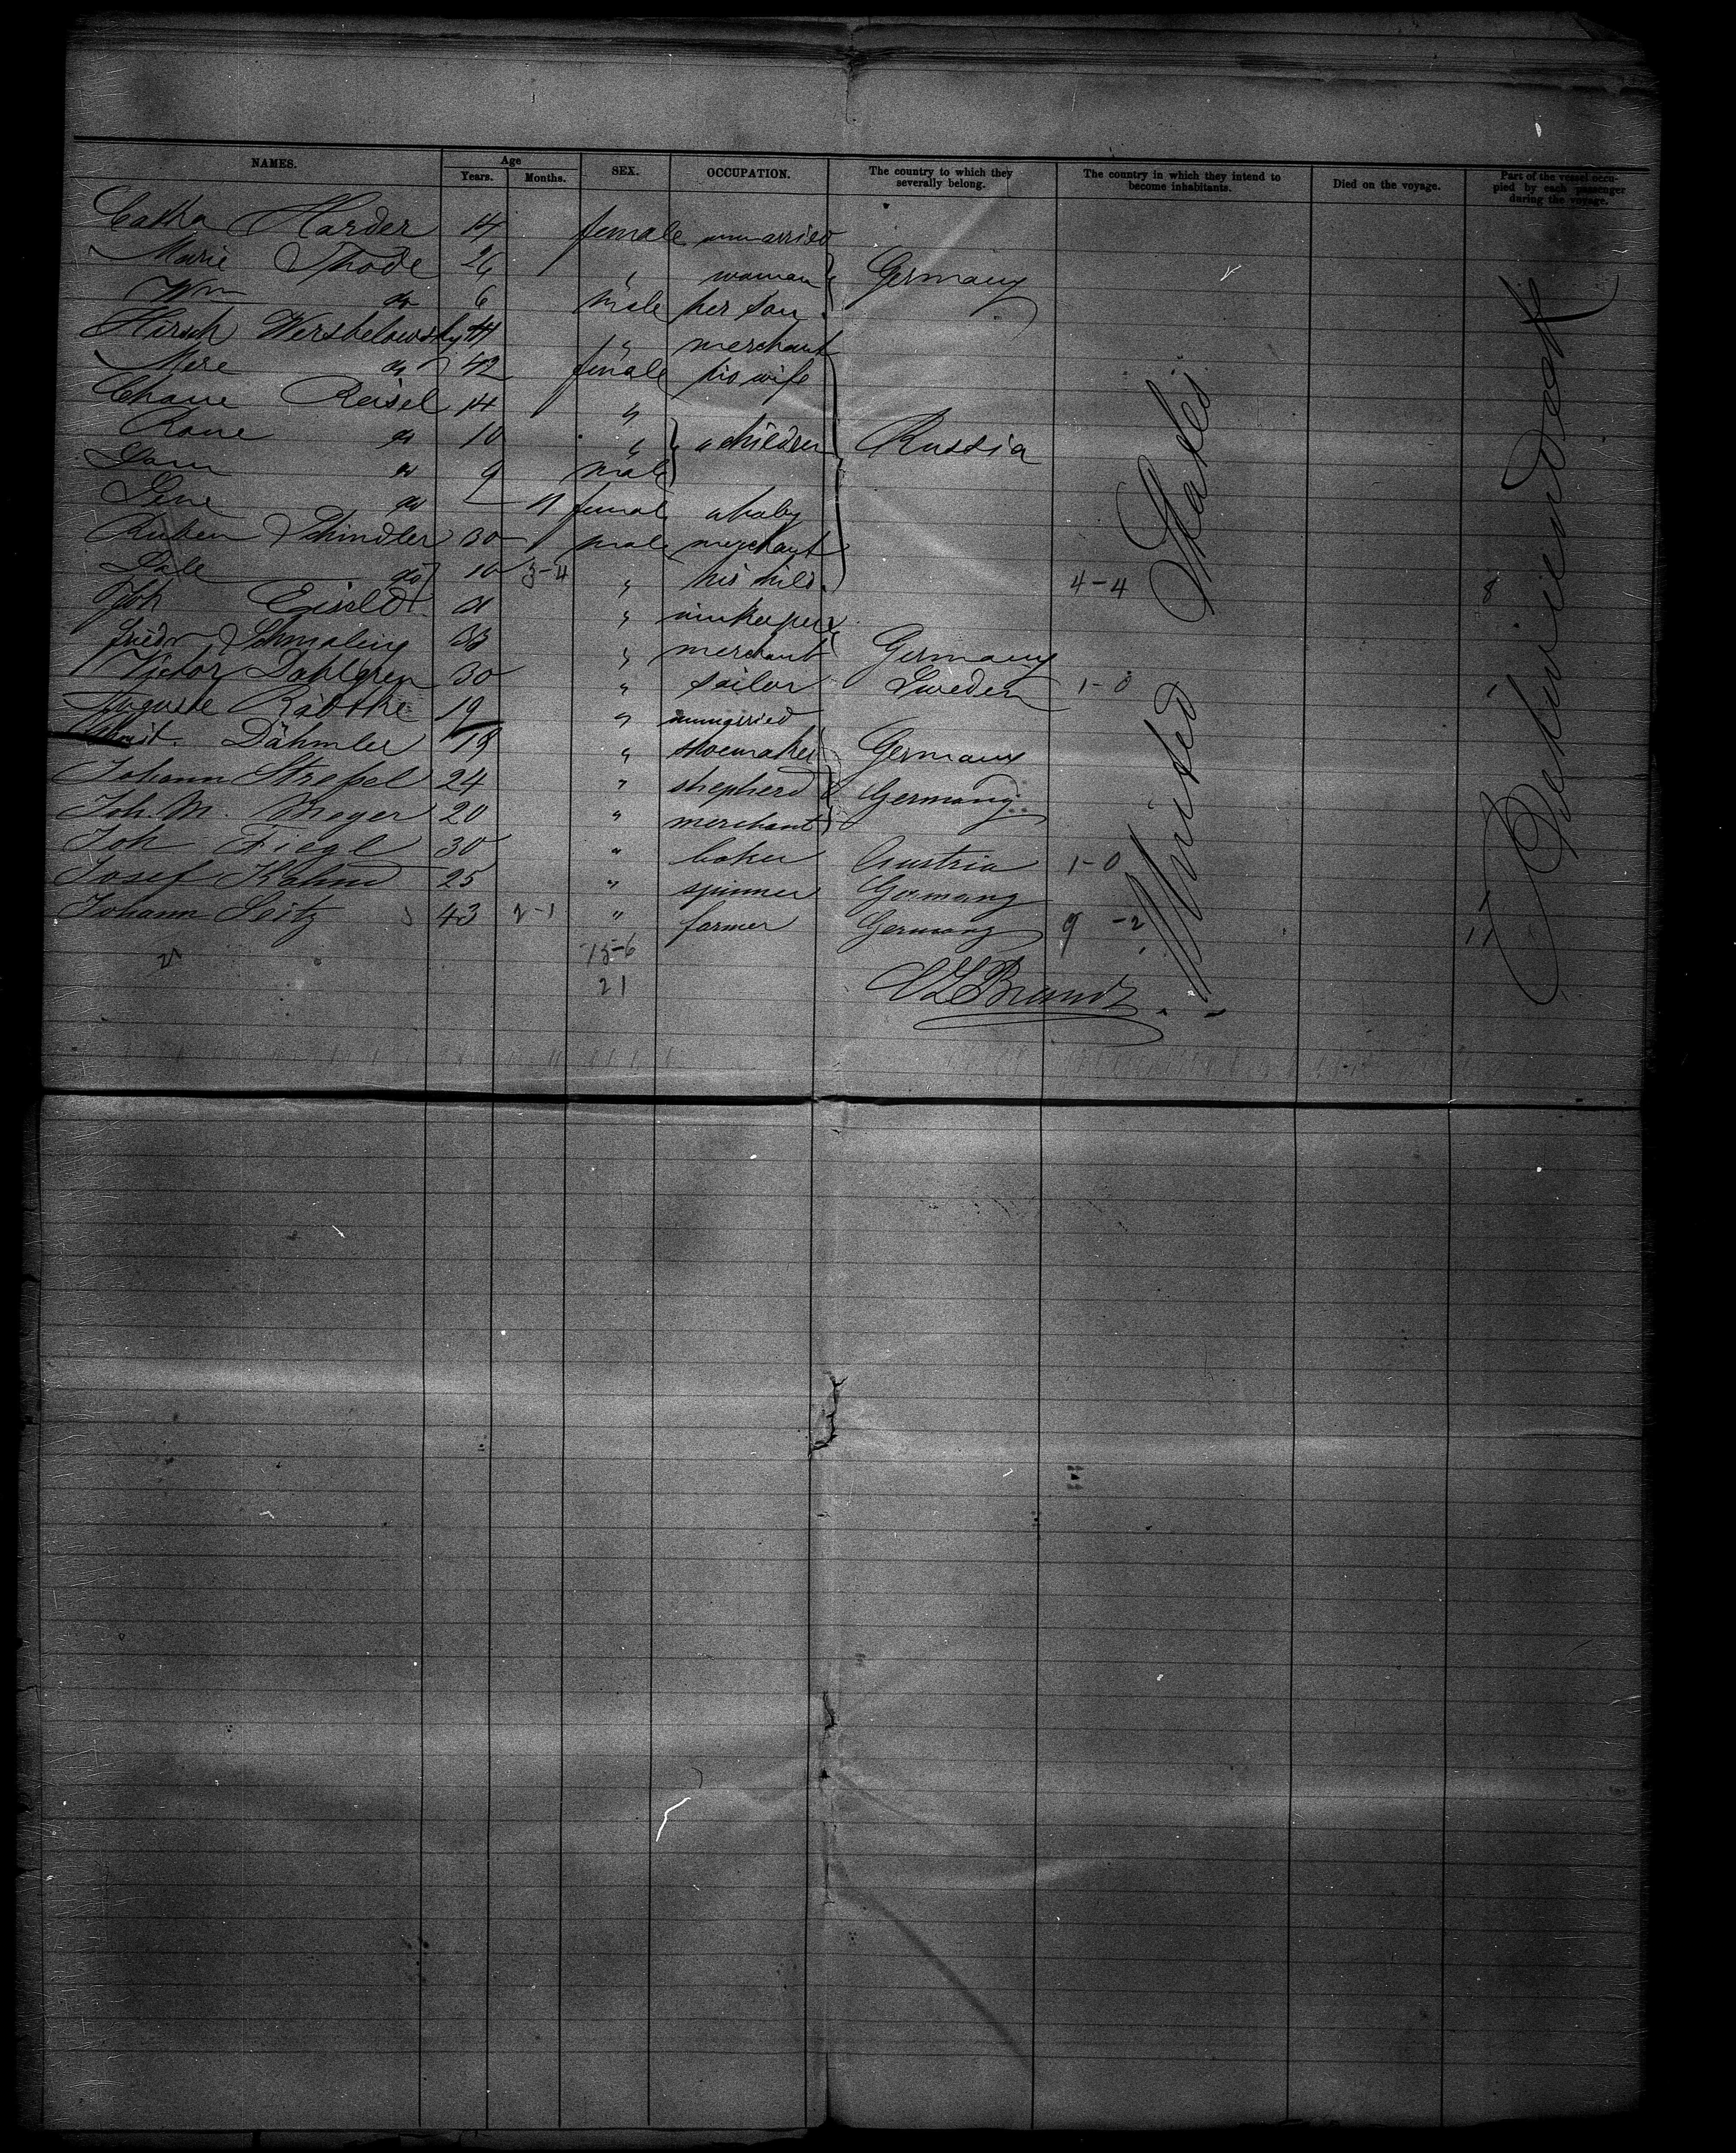 NAMES. Age SEX. OCCUPATION. The country to which they severally belong. The country in which they intend to become inhabitants. Died on the voyage. Part of the vessel occupied by each passenger during the voyage.
Years. Months.
Catha Harder 14 female unmarried
Marie Thode 26 " woman Germany
Wm do 6 male her son
Hirsch Wersbelowsky 44 " merchant
Mere do 42 female his wife
Chane Reisel 14 "
Rone do 10 " children Russia
do 9 male
Line do 11 female a baby
Ruben Schindler 30 male merchant
do 10 3-4 " his child. 4-4 8
Joh Eiseldt " innkeeper
Friedr Schmaling 33 " merchant Germany
Victor Dahlgren 30 " sailor Sweden 1-0 1
Auguste Rädtke 19 " unmarried
Dähmler 18 " shoemaker Germany
Johann Streßel 24 " shepherd Germany
Joh. M. Meyer 20 " merchant
Joh Fiegl 30 " baker Austria 1-0
Josef Kohnd 25 " spinner Germany 1
Johann Seitz 43 2-1 " farmer Germany 9-2 11
21 15-6
21
Brandt
United States
Betwiendeck